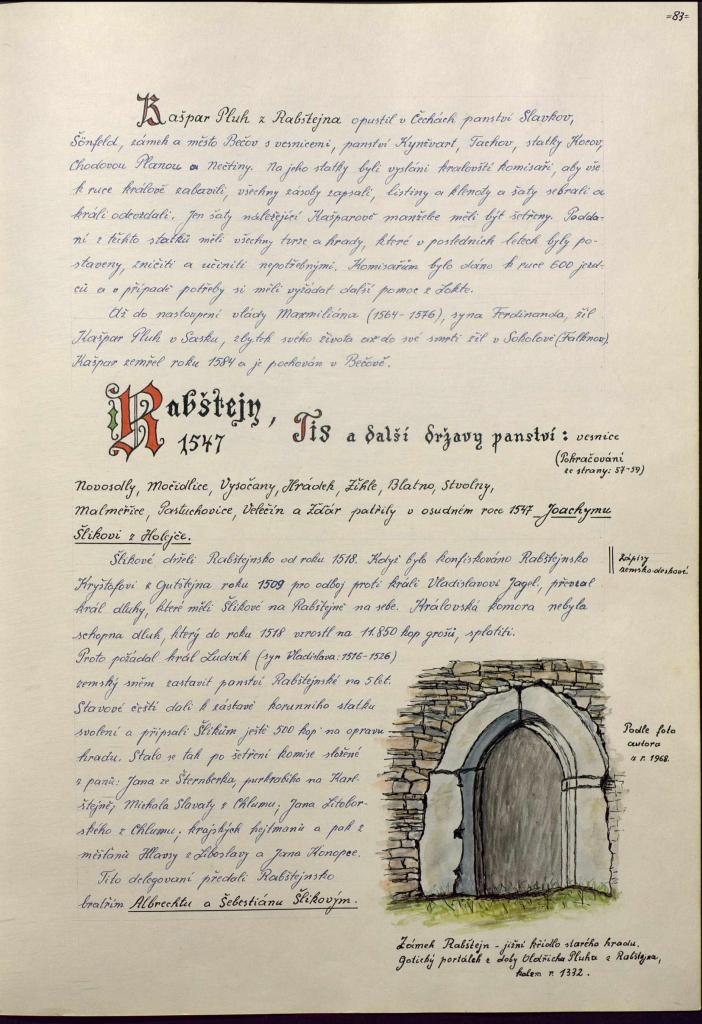 =83=
Kašpar Pluh z Rabštejna opustil v Čechách panství Slavkov,
Šönfeld, zámek a město Bečov s vesnicemi, panství Kynžvart, Tachov, statky Kocov,
Chodovou Planou a Nečtiny. Na jeho statky byli vysláni královští komisaři, aby vše
k ruce králově zabavili, všechny zásoby zapsali, listiny a klenoty a šaty sebrali a
králi odevzdali. Jen šaty náležející Kašparově manželce měli být šetřeny. Podda-
ní z těchto statků měli všechny tvrze a hrady, které v posledních letech byly po-
staveny, zničiti a učiniti nepotřebnými. Komisařům bylo dáno k ruce 600 jezd-
ců a v případě potřeby si měli vyžádat další pomoc z Lokte.
Až do nastoupení vlády Maxmiliána (1564-1576), syna Ferdinanda, žil
Kašpar Pluh v Sasku, zbytek svého života až do své smrti žil v Sokolově (Falknov)
Kašpar zemřel roku 1584 a je pochován v Bečově.
Rabštejn, Tis a další državy panství: vesnice
1547
(Pokračování
ze strany: 57-59)
Novosdly, Močidlice, Vysočany, Hrádek, Žihle, Blatno, Stvolny,
Malměřice, Pastuchovice, Velečín a Žďár patřily v osudném roce 1547 Joachymu
Šlikovi z Holejče.
Šlikové drželi Rabštejnsko od roku 1518. Když bylo konfiskováno Rabštejnsko
Kryštofovi z Gutštejna roku 1509 pro odboj proti králi Vladislavovi Jagel., převzal
král dluhy, které měli Šlikové na Rabštejně na sebe. Královská komora nebyla
schopna dluh, který do roku 1518 vzrostl na 11.850 kop grošů, splatiti.
Zápisy
zemsko-deskové
Proto požádal král Ludvík (syn Vladislava: 1516-1526)
zemský sněm zastavit panství Rabštejnské na 5 let.
Stavové čeští dali k zástavě korunního statku
svolení a připsali Šlikům ještě 500 kop na opravu
hradu. Stalo se tak po šetření komise složené
z pánů: Jana ze Šternberka, purkrabího na Karl-
štejně; Michala Slavaty z Chlumu; Jana Litobor-
ského z Chlumu; krajských hejtmanů a pak z
měšťanů Hlavsy z Liboslavy a Jana Konopce.
Tito delegovaní předali Rabštejnsko
bratřím Albrechtu a Šebestiánu Šlikovým.
Podle foto
autora
z r. 1968.
Zámek Rabštejn - jižní křídlo starého hradu.
Gotický portálek z doby Oldřicha Pluha z Rabštejna,
kolem r. 1332.